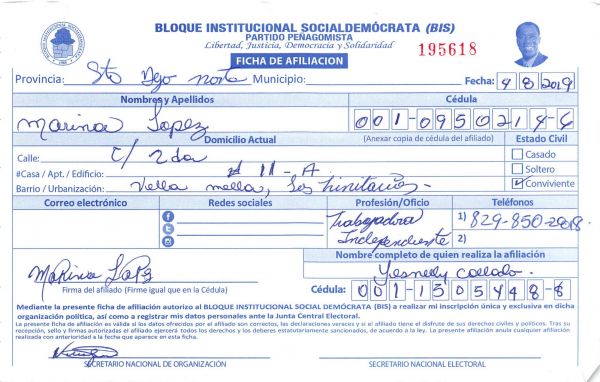 BLOQUE INSTITUCIONAL SOCIALDEMÓCRATA (BIS)
PARTIDO PEÑAGOMISTA
Libertad, Justicia, Democracia y Solidaridad
195618
FICHA DE AFILIACION
Provincia: Sto Dgo norte Municipio: Fecha: 4/8/2019
Nombres y Apellidos Cédula
Marina Lopez 001-0950214-6
Domicilio Actual (Anexar copia de cédula del afiliado) Estado Civil
Calle: C/ 2da Casado
#Casa / Apt. / Edificio: # 11-A Soltero
Barrio / Urbanización: Vella mella, Los trinitarios Conviviente
Correo electrónico Redes sociales Profesión/Oficio Teléfonos
Trabajadora 1) 829-850-2018
Independiente 2)
Nombre completo de quien realiza la afiliación
Marina Lopez Yesnelly Collado
Firma del afiliado (Firme igual que en la Cédula) Cédula: 001-1505448-8
Mediante la presente ficha de afiliación autorizo al BLOQUE INSTITUCIONAL SOCIAL DEMÓCRATA (BIS) a realizar mi inscripción única y exclusiva en dicha
organización política, así como a registrar mis datos personales ante la Junta Central Electoral.
La presente ficha de afiliación es válida si los datos ofrecidos por el afiliado son correctos, las declaraciones veraces y si el afiliado tiene el disfrute de sus derechos civiles y políticos. Tras su
recepción, sello y firmas autorizadas el afiliado ejercerá todos los derechos y los deberes estatutariamente sancionados, de acuerdo a la ley. La presente afiliación anula cualquier afiliación
realizada con anterioridad a la fecha que aparece en esta ficha.
SECRETARIO NACIONAL DE ORGANIZACIÓN SECRETARIO NACIONAL ELECTORAL